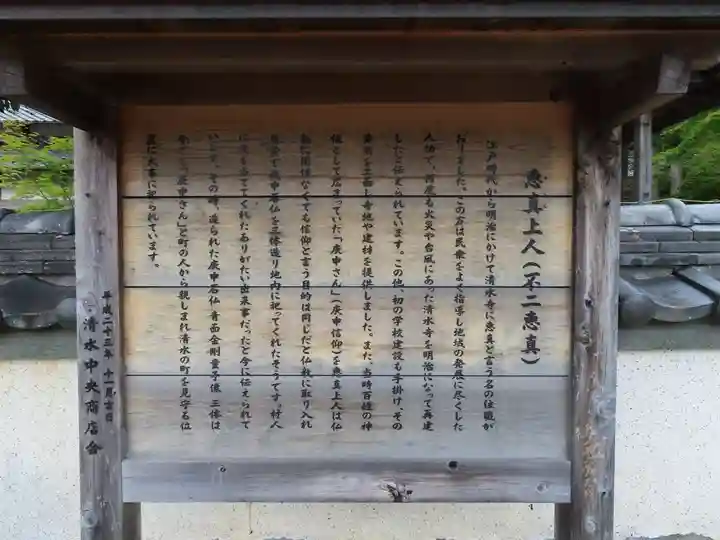 恵真上人(不二恵真)
江戸時代から明治にかけて清水寺に恵真と言う名の住職が
おりました。この方は民衆をよく指導し地域の発展に尽くした
人物で、何度も火災や台風にあった清水寺を明治になって再建
したと伝えられています。この他、初の学校建設も手掛け、その
費用を工面し寺地や建材を提供しました。また、当時百姓の神
様として広まっていた「庚申さん」(庚申信仰)を恵真上人は仏
教に関係なくても信仰と言う目的は同じだと仏教に取り入れ
庚申石仏を三体造り地内に祀ってくれたそうです。村人
に光を当ててくれたありがたい出来事だったと今に伝えられて
います。その時、造られた庚申石仏 青面金剛童子像 三体は
「庚申さん」と町の人から親しまれ清水の町を見守る仏
大事に祀られています。
平成二十三年 十一月吉日
清水中央商店会